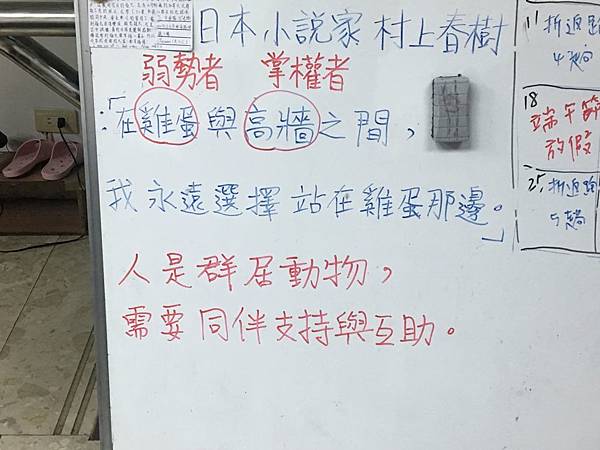 日本小說家 村上春樹
弱勢者 掌權者
:「在雞蛋與高牆之間,
我永遠選擇站在雞蛋那邊。」
人是群居動物,
需要同伴支持與互助。
11 折返跑
4趟
18
端午節
放假
25 折返跑
5趟